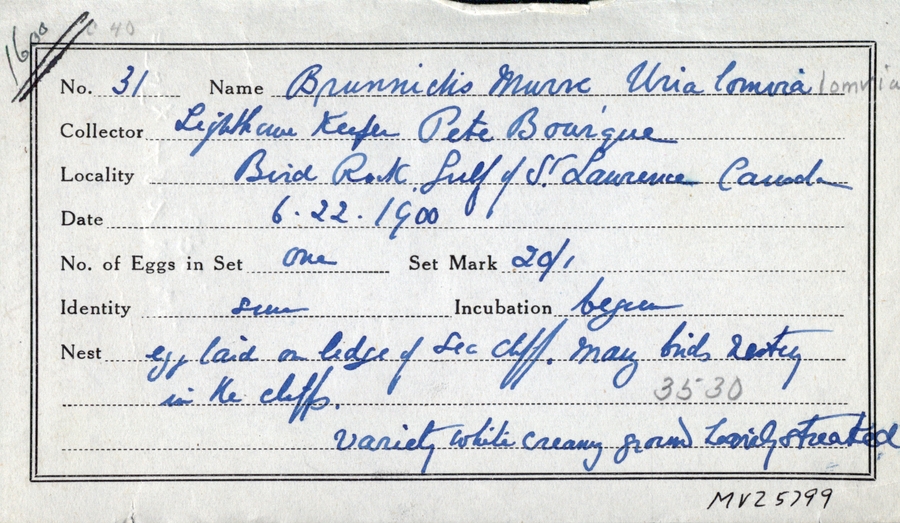 1600 C 40
No. 31 Name Brunnichs Murre Uria lomvia lomvia
Collector Lighthouse Keeper Pete Bourque
Locality Bird Rock, Gulf of St. Lawrence Canada
Date 6.22.1900
No. of Eggs in Set one Set Mark 20/1
Identity sure Incubation begun
Nest egg laid on ledge of sea cliff. Many birds nesting
in the cliffs.
3530
variety white creamy ground streaked
MVZ 5799